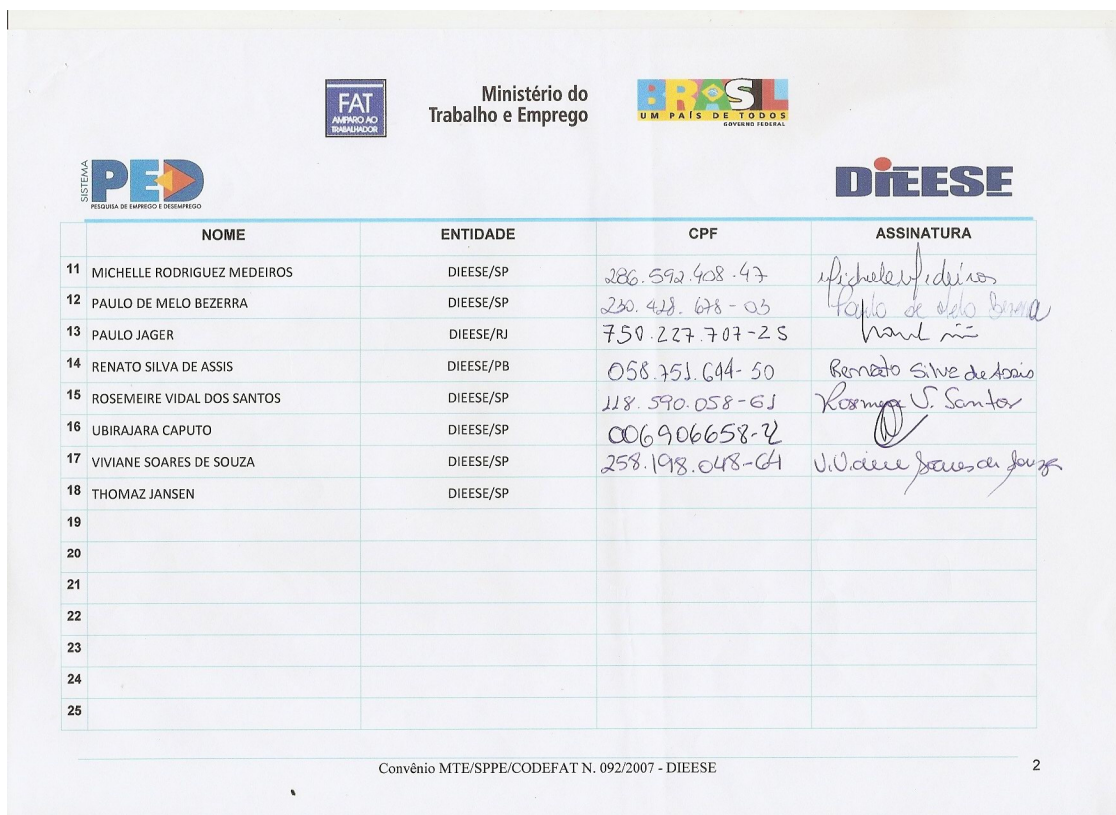 FAT
AMPARO AO
TRABALHADOR
Ministério do
Trabalho e Emprego
BRASIL
UM PAÍS DE TODOS
GOVERNO FEDERAL
SISTEMA
PED
PESQUISA DE EMPREGO E DESEMPREGO
DIEESE
NOME ENTIDADE CPF ASSINATURA
11 MICHELLE RODRIGUEZ MEDEIROS DIEESE/SP 286.592.408-47
12 PAULO DE MELO BEZERRA DIEESE/SP 230.428.678-03 Paulo de Melo Bezerra
13 PAULO JAGER DIEESE/RJ 750.227.707-25
14 RENATO SILVA DE ASSIS DIEESE/PB 058.751.644-50 Rennato Silva de Assis
15 ROSEMEIRE VIDAL DOS SANTOS DIEESE/SP 118.590.058-61 V. Santos
16 UBIRAJARA CAPUTO DIEESE/SP
17 VIVIANE SOARES DE SOUZA DIEESE/SP 258.198.048-64 Viviane Soares de Souza
18 THOMAZ JANSEN DIEESE/SP
19
20
21
22
23
24
25
Convênio MTE/SPPE/CODEFAT N. 092/2007 - DIEESE 2